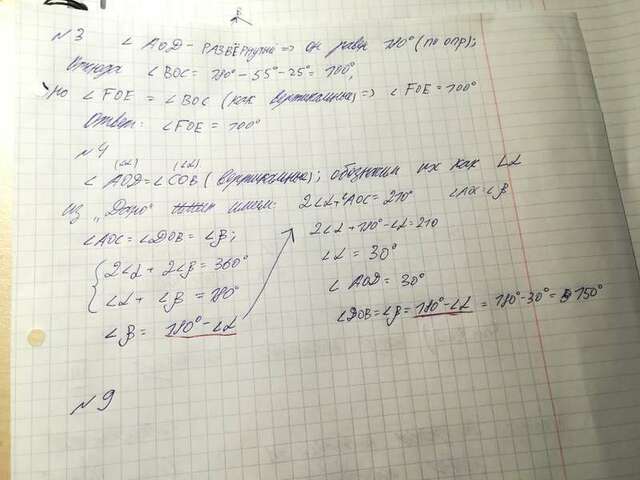 B
№3 ∠AOD - развёрнутый => он равен 180° (по опр);
Откуда ∠BOC = 180° - 55° - 25° = 100°,
но ∠FOE = ∠BOC (как вертикальные) => ∠FOE = 100°
Ответ: ∠FOE = 100°
№4
(∠α) (∠α)
∠AOD = ∠COB (вертикальные); обозначим их как ∠α
Из „Дано“ имеем: 2∠α + ∠AOC = 210° ∠AOC = ∠β
∠AOC = ∠DOB = ∠β; 2∠α + 180° - ∠α = 210
{ 2∠α + 2∠β = 360° ∠α = 30°
∠α + ∠β = 180° ∠AOD = 30°
∠β = 180° - ∠α ∠DOB = ∠β = 180° - ∠α = 180° - 30° = 150°
№9